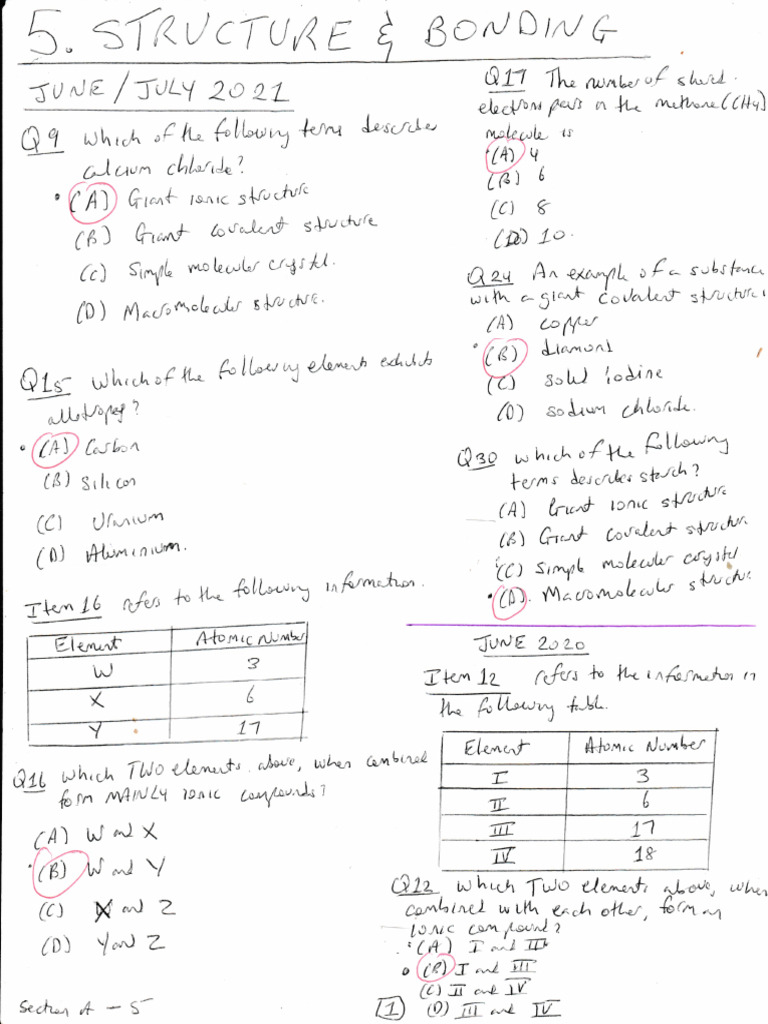 5. STRUCTURE & BONDING
JUNE/JULY 2021
Q9 Which of the following terms describes
calcium chloride?
(A) Giant ionic structure
(B) Giant covalent structure
(C) Simple molecular crystal.
(D) Macromolecular structure.
Q15 Which of the following elements exhibits
allotropy?
(A) Carbon
(B) Silicon
(C) Uranium
(D) Aluminium.
Item 16 refers to the following information.
Element Atomic Number
W 3
X 6
Y 17
Q16 Which TWO elements above, when combined
form MAINLY ionic compounds?
(A) W and X
(B) W and Y
(C) X and Z
(D) Y and Z
Section A - 5
Q17 The number of shared
electron pairs in the methane (CH4)
molecule is
(A) 4
(B) 6
(C) 8
(D) 10.
Q24 An example of a substance
with a giant covalent structure is
(A) copper
(B) diamond
(C) solid iodine
(D) sodium chloride.
Q30 Which of the following
terms describes starch?
(A) Giant ionic structure
(B) Giant covalent structure
(C) Simple molecular crystal
(D) Macromolecular structure.
JUNE 2020
Item 12 refers to the information in
the following table.
Element Atomic Number
I 3
II 6
III 17
IV 18
Q12 Which TWO elements above, when
combined with each other, form an
ionic compound?
(A) I and II
(B) I and III
(C) II and IV
(D) III and IV
1